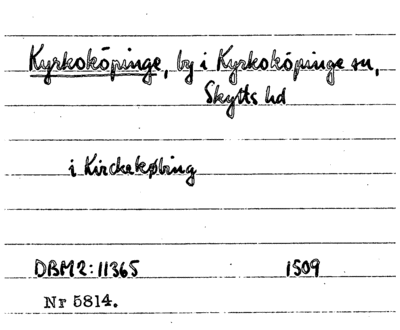 Kyrkoköpinge, by i Kyrkoköpinge sn,
Skytts hd
i Kirckekøbing
DBM2:11365 1509
Nr 5814.